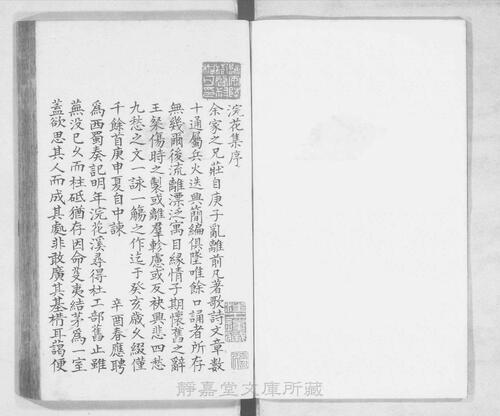 浣花集序
余家之兄莊自庚子亂離前凡著歌詩文章數
十通屬兵火迭興簡編俱墜唯餘口誦者所存
無幾爾後流離漂泛寓目緣情子期懷舊之辭
王粲傷時之製或離羣軫慮或反袂興悲四愁
九愁之文一詠一觴之作迄于癸亥歲又綴僅
千餘首庚申夏自中諫　辛酉春應聘
爲西蜀奏記明年浣花溪尋得杜工部舊止雖
蕪没已久而柱砥猶存因命芟夷結茅爲一室
蓋欲思其人而成其處非敢廣其基構耳藹便
靜嘉堂文庫所藏